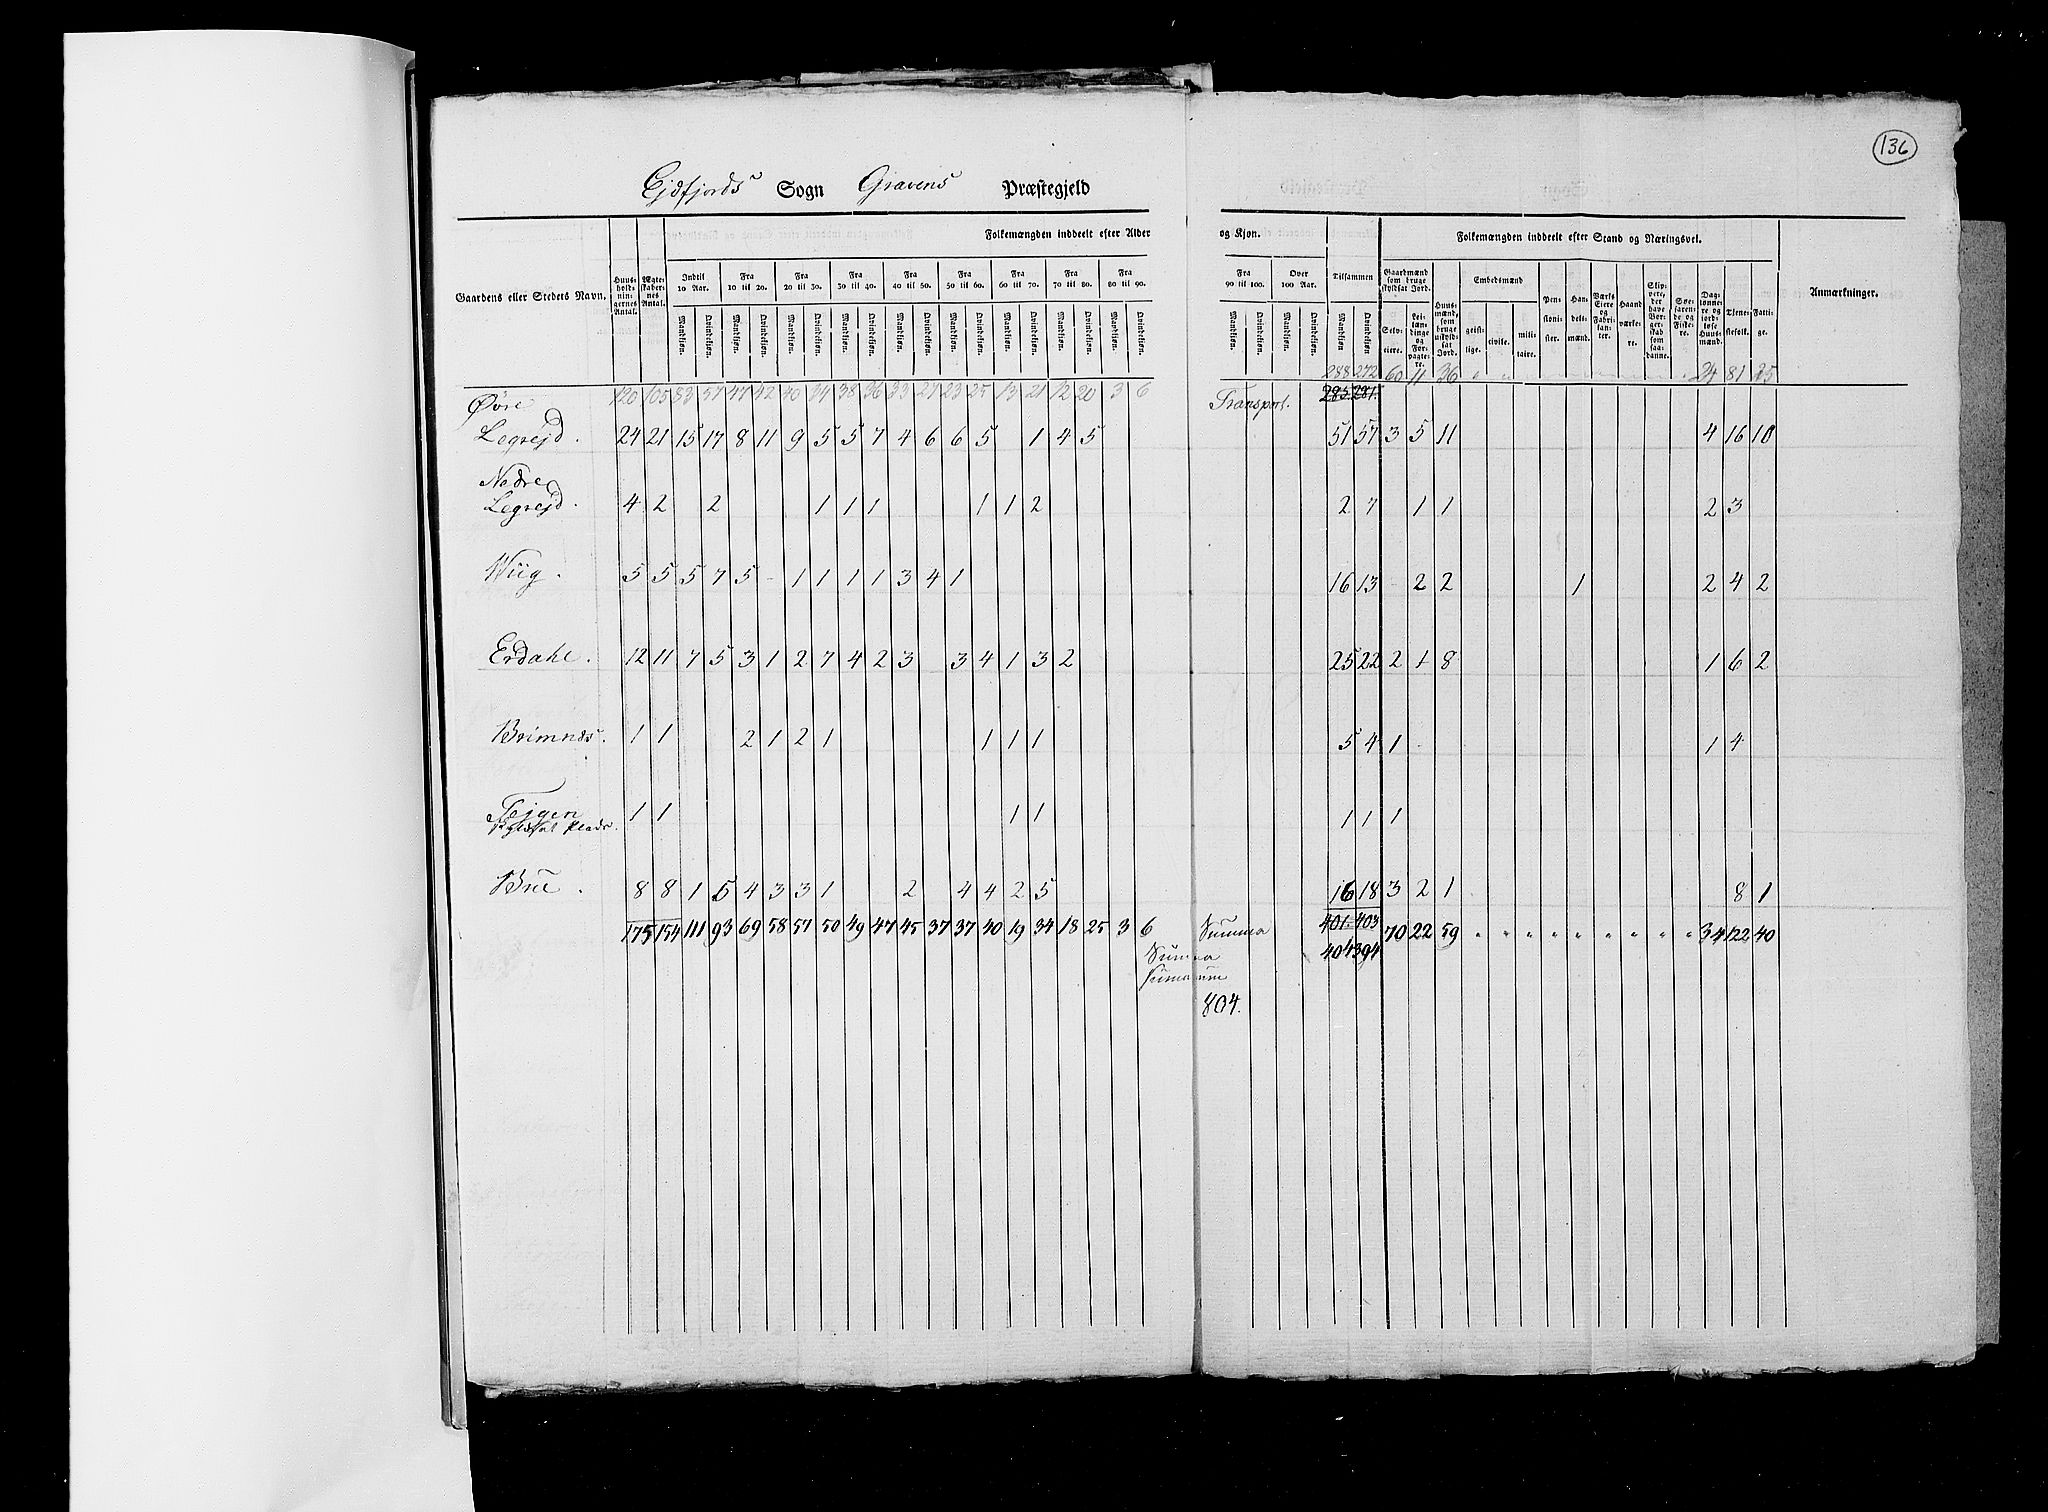 136
Ejdfjords Sogn Gravens Præstegjeld
Gaardens eller Stedets Navn.
Huus-holdningernes Antal.
Ægteskabernes Antal.
Folkemængden inddeelt efter Alder og Kjøn.
Indtil 10 Aar. Fra 10 til 20. Fra 20 til 30. Fra 30 til 40. Fra 40 til 50. Fra 50 til 60. Fra 60 til 70. Fra 70 til 80. Fra 80 til 90. Fra 90 til 100. Over 100 Aar. Tilsammen
Mandkjøn. Qvindekjøn. Mandkjøn. Qvindekjøn. Mandkjøn. Qvindekjøn. Mandkjøn. Qvindekjøn. Mandkjøn. Qvindekjøn. Mandkjøn. Qvindekjøn. Mandkjøn. Qvindekjøn. Mandkjøn. Qvindekjøn. Mandkjøn. Qvindekjøn. Mandkjøn. Qvindekjøn. Mandkjøn. Qvindekjøn. Mandkjøn Qvindekjøn
Folkemængden inddeelt efter Stand og Næringsvei.
Gaardmænd som bruge skyldsat Jord.
Selveiere. Leilændinge og Forpagtere.
Huusmænd, som bruge uskyldsat Jord.
Embedsmænd
geistlige. civile. militaire.
Pensionister.
Handelsmænd.
Værks Eiere og Fabrikanter.
Haandværkere.
Skippere, der have Borgerskab som saadanne.
Søefarende og Fiskere.
Daglønnere og jordløse Huusmænd.
Tjenestefolk.
Fattige.
Anmærkninger.
288 272 60 11 36 24 81 25
120 105 83 57 47 42 40 34 38 36 33 27 23 25 13 21 12 20 3 6 Transport. 283. 281.
Øvre
Legrejd. 24 21 15 17 8 11 9 5 5 7 4 6 6 5 1 4 5 51 57 3 5 11 4 16 10
Nedre
Legrejd. 4 2 2 1 1 1 1 1 2 2 7 1 1 2 3
Wiig. 5 5 5 7 5 - 1 1 1 1 3 4 1 16 13 - 2 2 1 2 4 2
Erdahl. 12 11 7 5 3 1 2 7 4 2 3 3 4 1 3 2 25 22 2 1 8 1 6 2
Brimnæs. 1 1 2 1 2 1 1 1 1 5 4 1 1 4
Tejgen 1 1 1 1 1 1 1
Brue. 8 8 1 5 4 3 3 1 2 4 4 2 5 16 18 3 2 1 8 1
175 154 111 93 69 58 57 50 49 47 45 37 37 40 19 34 18 25 3 6 Summa 401. 403 70 22 59 " " " " " " " " " 34 122 40
404 394
Summa
Summarum
804.